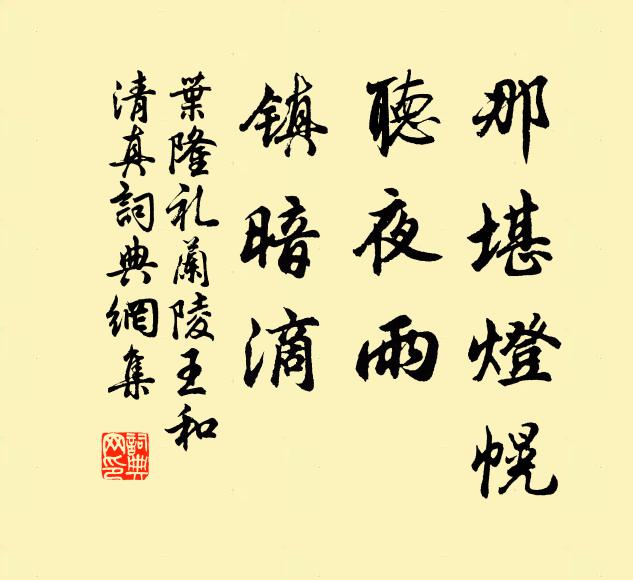 那堪燈幌
聽夜雨
鎮暗滴
葉隆礼蘭陵王和
清真詞典網集
詞典網印